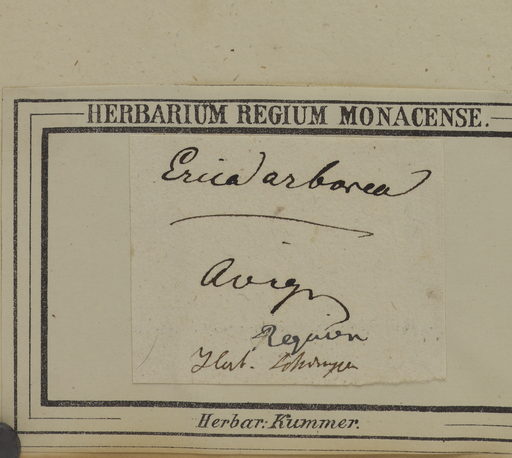 HERBARIUM REGIUM MONACENSE.
Erica arborea
Avign
Requien
Herb. Schimper
Herbar: Kummer.